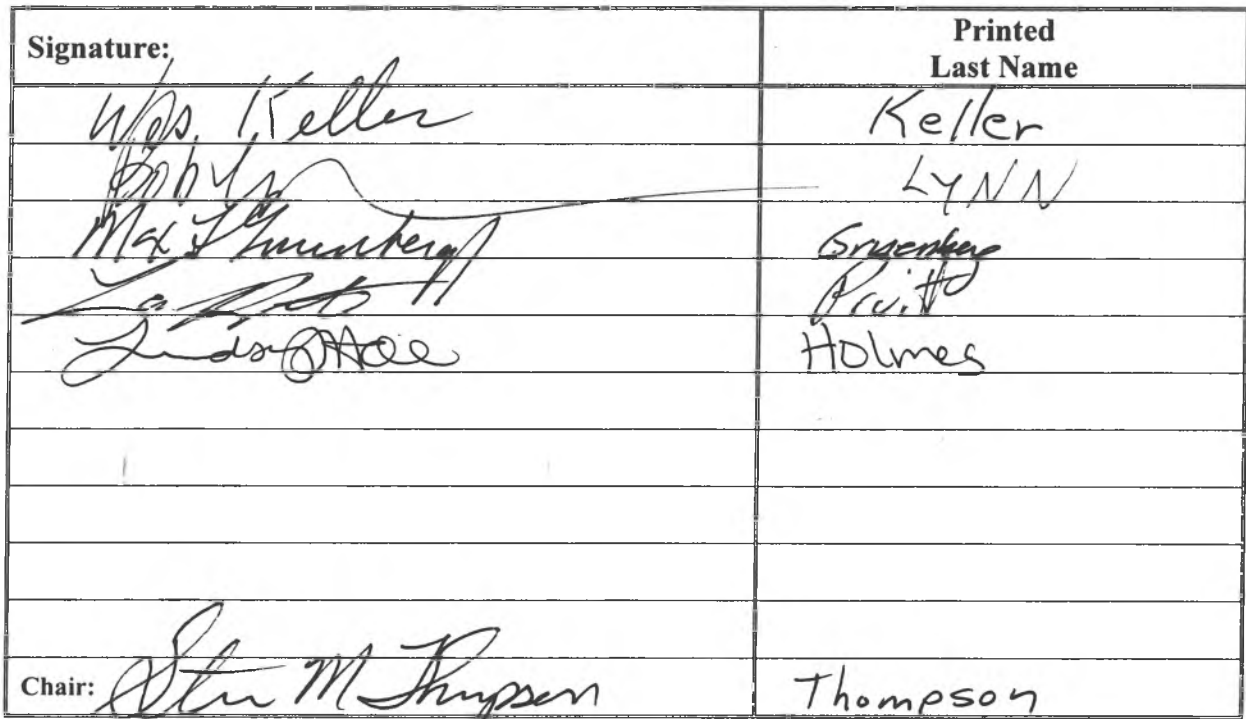 Signature: Printed
Last Name
Wes Keller Keller
Bob Lynn LYNN
Max F Gruenberg Gruenberg
Pruitt
Lindsey Holmes
Chair: Steve M Thompson Thompson